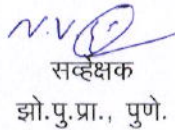 N.V
सर्व्हेक्षक
झो.पु.प्रा., पुणे.